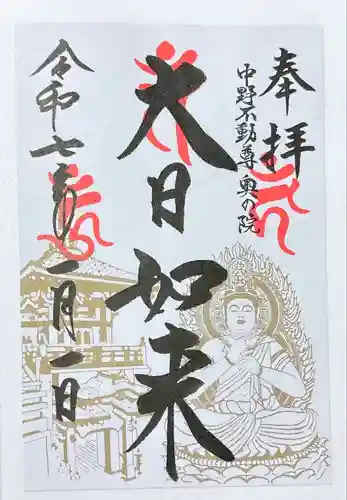 奉拝
中野不動尊奥の院
大日如来
令和七年一月一日